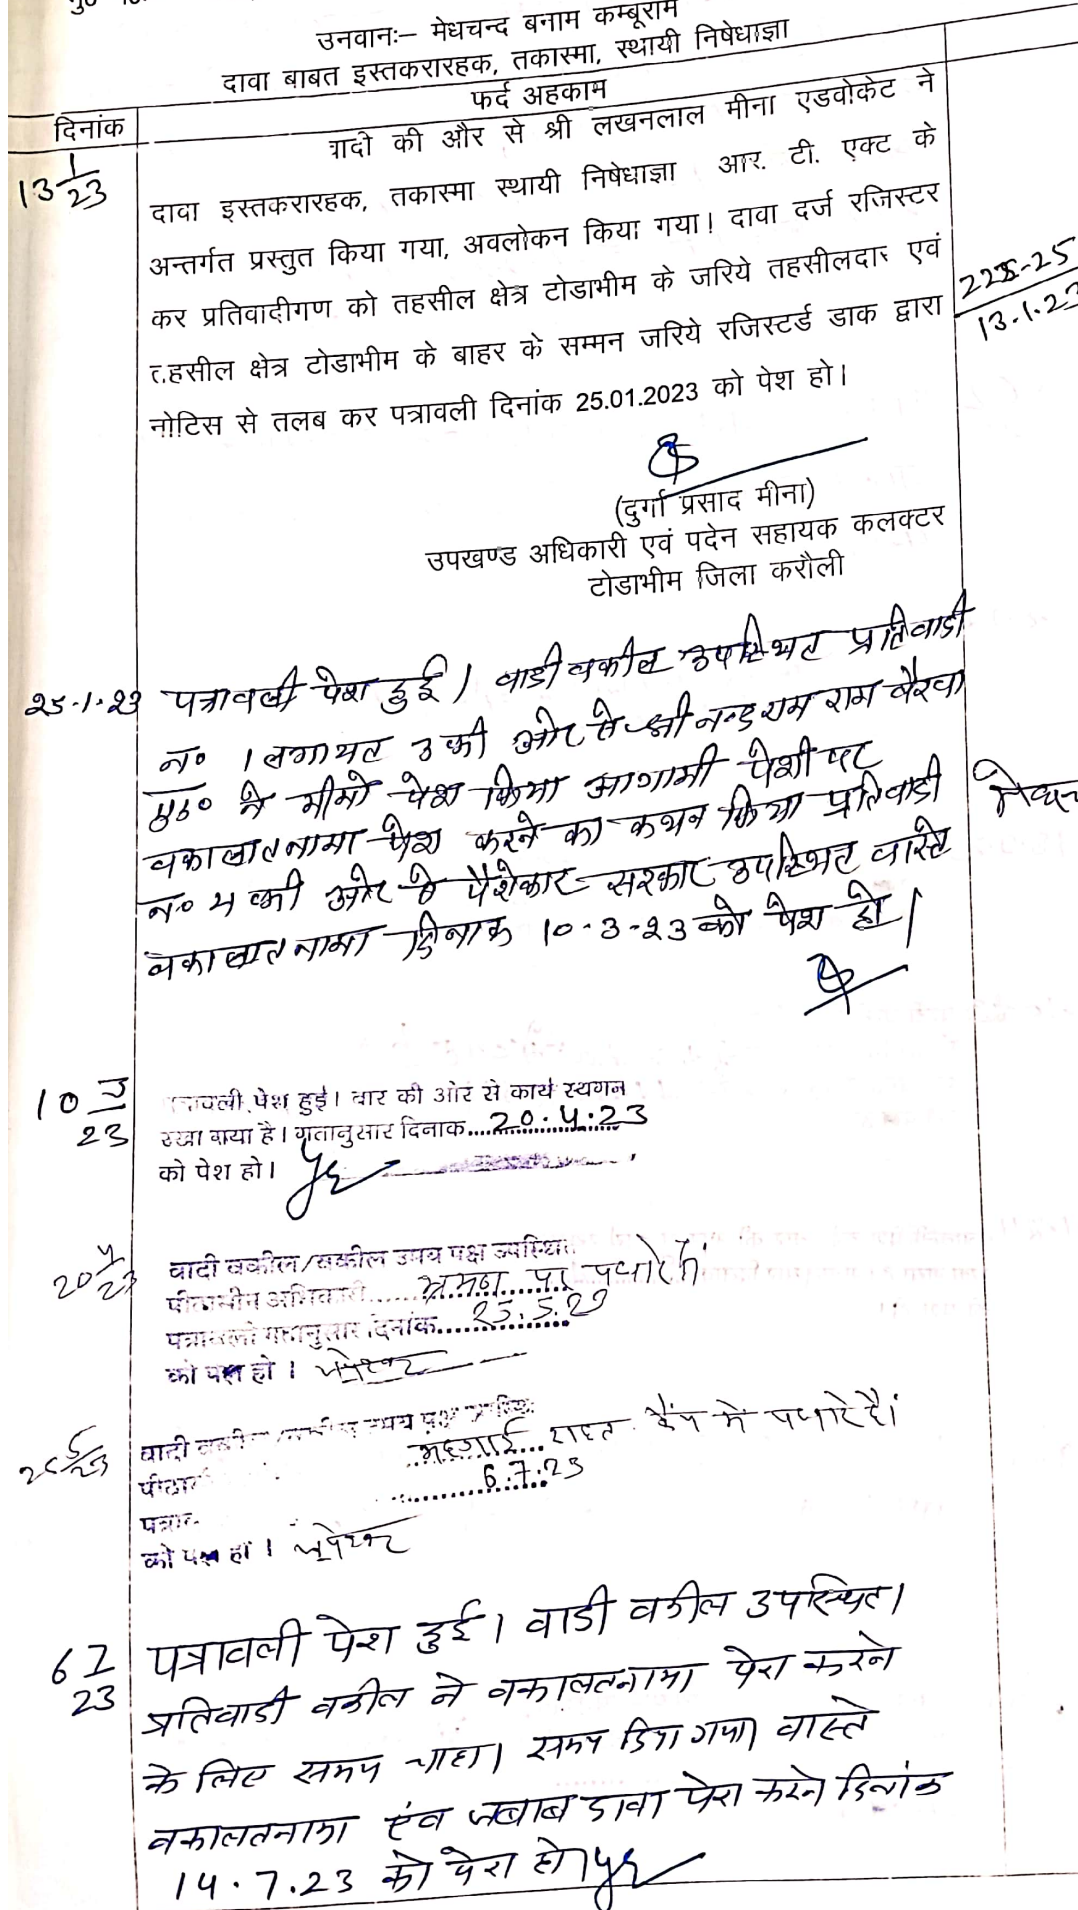 उनवानः– मेधचन्द बनाम कम्बूराम
दावा बाबत इस्तकरारहक, तकास्मा, स्थायी निषेधाज्ञा
फर्द अहकाम
दिनांक
13 1/23
वादी की और से श्री लखनलाल मीना एडवोकेट ने
दावा इस्तकरारहक, तकास्मा स्थायी निषेधाज्ञा आर. टी. एक्ट के
अन्तर्गत प्रस्तुत किया गया, अवलोकन किया गया। दावा दर्ज रजिस्टर
कर प्रतिवादीगण को तहसील क्षेत्र टोडाभीम के जरिये तहसीलदार एवं
तहसील क्षेत्र टोडाभीम के बाहर के सम्मन जरिये रजिस्टर्ड डाक द्वारा
नोटिस से तलब कर पत्रावली दिनांक 25.01.2023 को पेश हो।
13.1.23
(दुर्गा प्रसाद मीना)
उपखण्ड अधिकारी एवं पदेन सहायक कलक्टर
टोडाभीम जिला करौली
25.1.23 पत्रावली पेश हुई। वादी वकील उपस्थित प्रतिवादी
न० 1 लगायत 3 की ओर से श्री राम बैरवा
एड० ने मीमो पेश किया आगामी पेशी पर
वकालातनामा पेश करने का कथन किया प्रतिवादी
न० 4 की ओर से पैरोकार सरकार उपस्थित वास्ते
वकालातनामा दिनांक 10.3.23 को पेश हो।
10 3/23
पत्रावली पेश हुई। बार की ओर से कार्य स्थगन
रखा गया है। गतानुसार दिनाक....20.4.23
को पेश हो।
20 4/23
वादी वकील/वकील उभय पक्ष उपस्थित
पीठासीन अधिकारी......भ्रमण पर पधारे हैं
पत्रावली गतानुसार दिनांक....25.5.23
को पेश हो।
25 5/23
वादी उभय पक्ष
महगाई राहत कैंप में पधारे हैं।
6.7.23
को पेश हो।
6 7/23
पत्रावली पेश हुई। वादी वकील उपस्थित।
प्रतिवादी वकील ने वकालतनामा पेश करने
के लिए समय चाहा। समय दिया गया। वास्ते
वकालतनामा एंव जबाब दावा पेश करने दिनांक
14.7.23 को पेश हो।